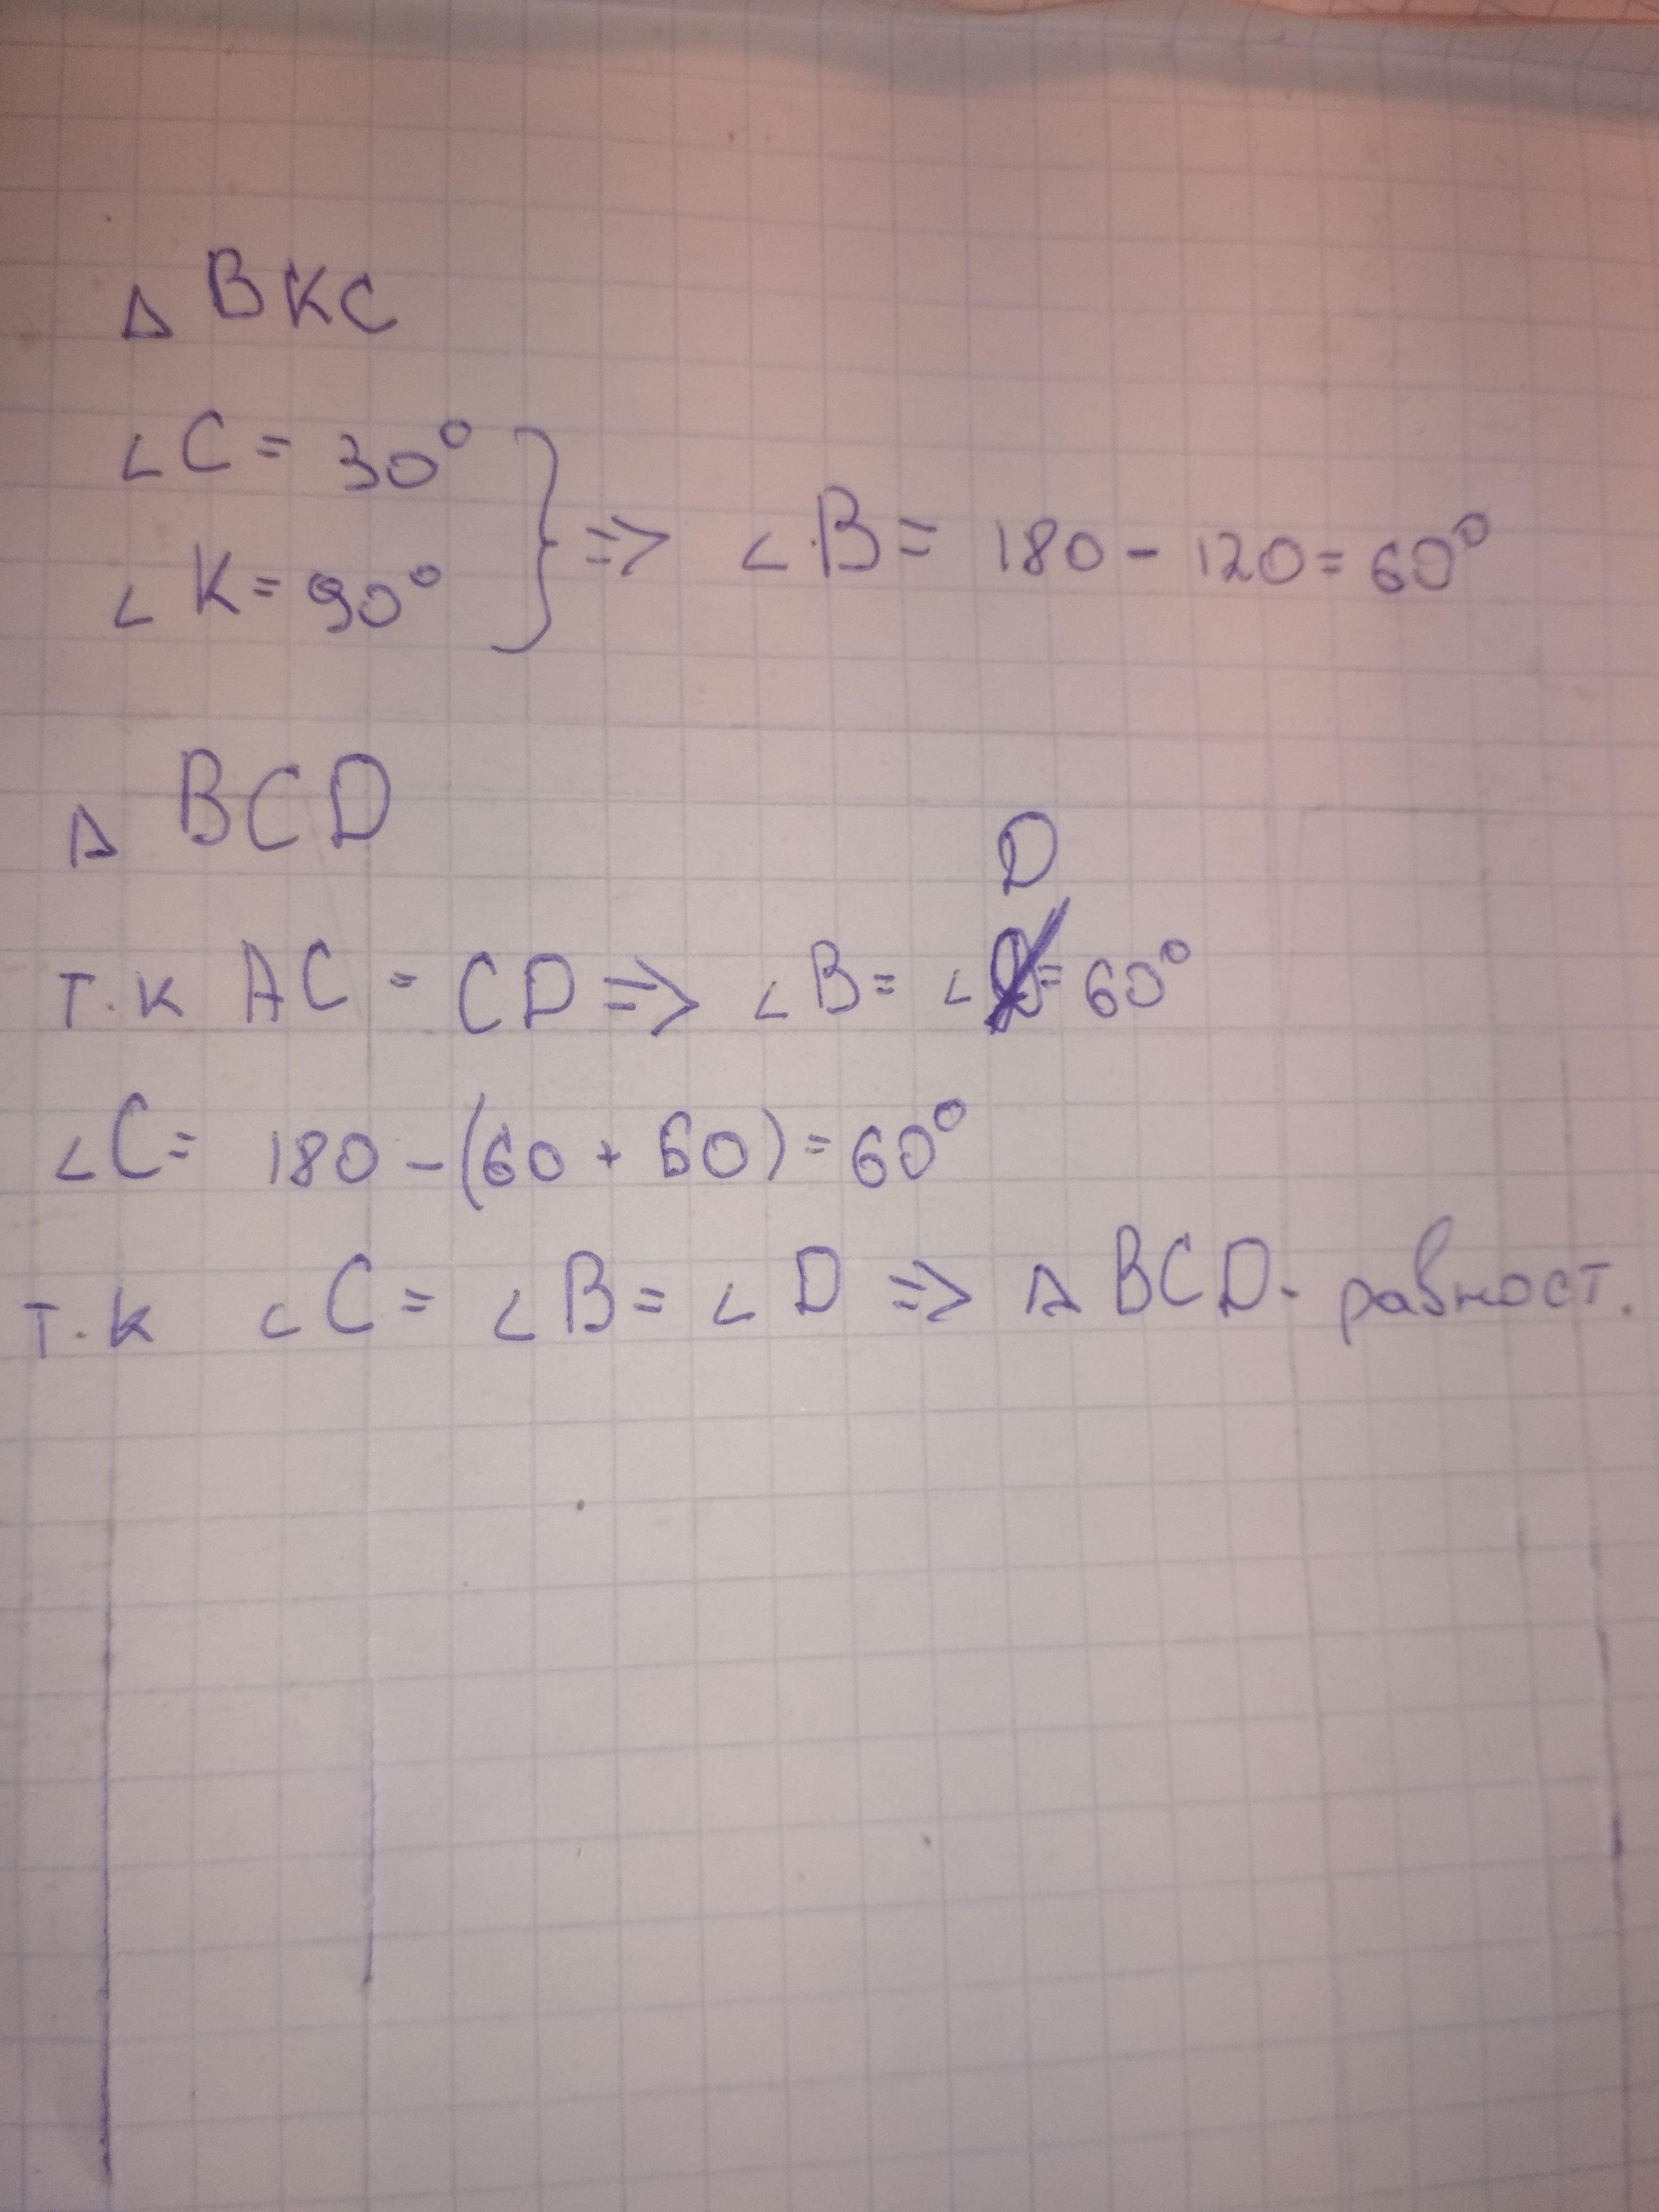 Δ BKC
∠C = 30°
∠K = 90° } => ∠B = 180 - 120 = 60°
Δ BCD
D
т.к AC = CD => ∠B = ∠ = 60°
∠C = 180 - (60 + 60) = 60°
т.к ∠C = ∠B = ∠D => Δ BCD - равност.